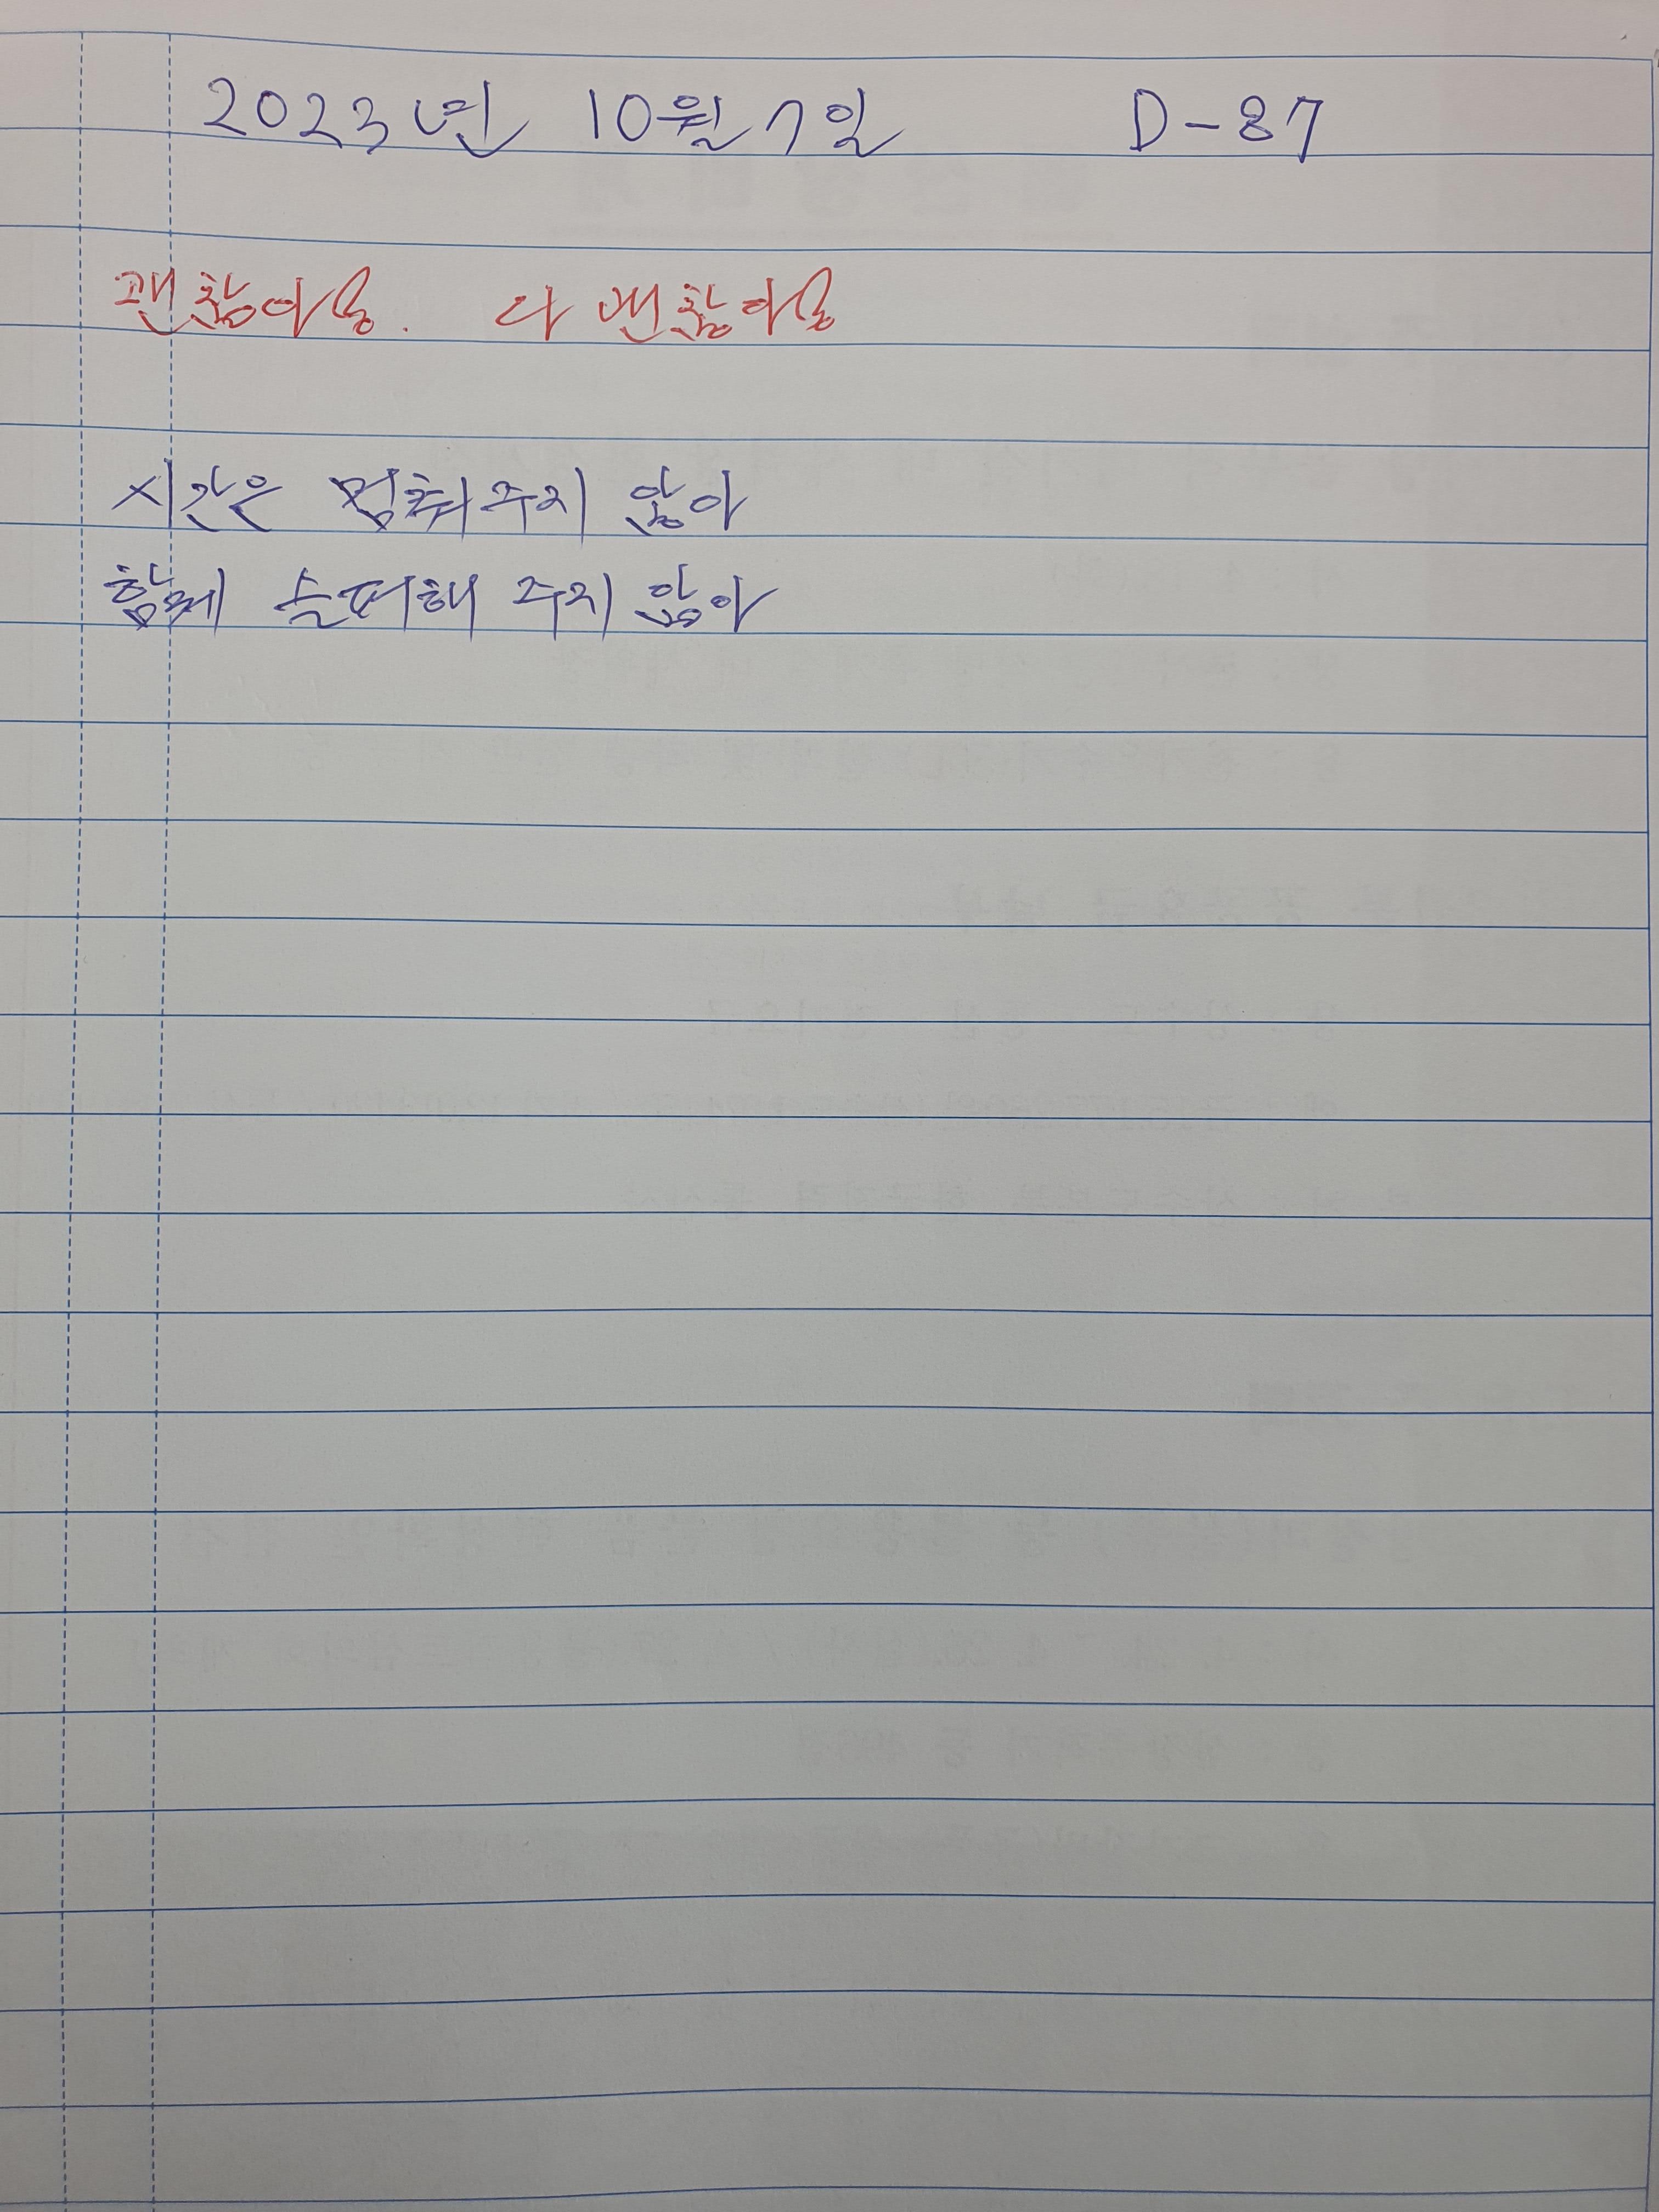 2023년 10월 7일 D-87
괜찮아요. 다 괜찮아요
시간은 멈춰주지 않아
함께 슬퍼해 주지 않아